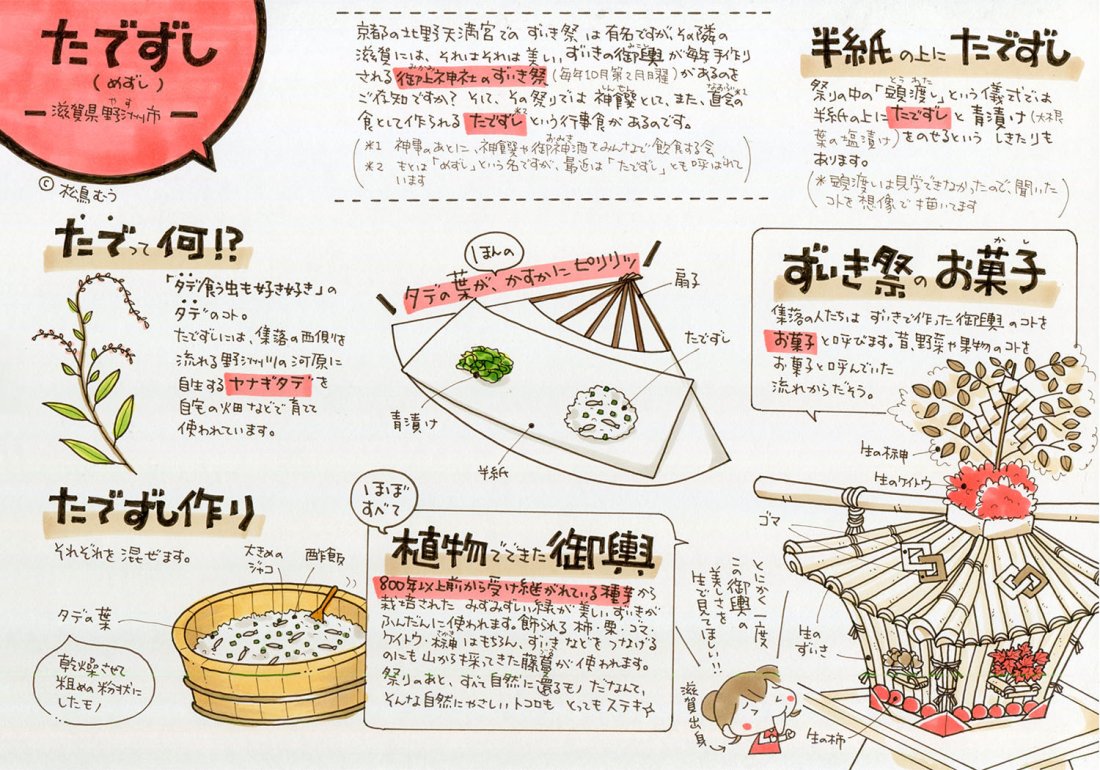 たでずし
(めずし)
滋賀県野洲市
やす
© 松鳥むう
京都の北野天満宮での ずいき祭 は有名ですが、その隣の
滋賀には、それはそれは美しいずいきの御輿が毎年手作り
される 御上神社のずいき祭 (毎年10月第2月曜)があるのを
みかみ
ご存知ですか? そして、その祭りでは 神饌として、また、直会*1の
しんせん
なおらい
食として作られる たでずし*2 という行事食があるのです。
*1 神事のあとに、神饌や御神酒をみんなで飲食する会
おみき
*2 もとは「めずし」という名ですが、最近は「たでずし」とも呼ばれて
います
半紙の上に たでずし
祭りの中の「頭渡し」という儀式では
とうわたし
半紙の上に たでずし と 青漬け(大根
葉の塩漬け)をのせるという しきたりも
あります。
*頭渡しは見学できなかったので、聞いた
コトを想像で描いてます
たでって何!?
「タデ食う虫も好き好き」の
タデのコト。
たでずしには、集落の西側を
流れる野洲川の河原に
自生する ヤナギタデ を
自宅の畑などで育てて
使われています。
ほんの
タデの葉が、かすかに ピリリッ
扇子
たでずし
青漬け
半紙
ずいき祭のお菓子
かし
集落の人たちは ずいきで作った御輿のコトを
お菓子 と呼びます。昔、野菜や果物のコトを
お菓子と呼んでいた
流れからだそう。
生の榊
生のケイトウ
ゴマ
生の
ずいき
生の柿
たでずし作り
それぞれを混ぜます。
大きめの
ジャコ
酢飯
タデの葉
乾燥させて
粗めの粉状に
したモノ
ほぼ
すべて
植物でできた御輿
800年以上前から受け継がれている種芋から
栽培された みずみずしい緑が美しいずいきが
ふんだんに使われます。飾られる 柿・栗・ゴマ・
ケイトウ・榊はもちろん、ずいきなどをつなげる
のにも山から採ってきた藤蔓が使われます。
祭りのあと、すべて自然に還るモノだなんて、
そんな自然にやさしいトコロも とってもステキ
とにかく一度
この御輿の
美しさを
生で見てほしい!!
滋賀出身